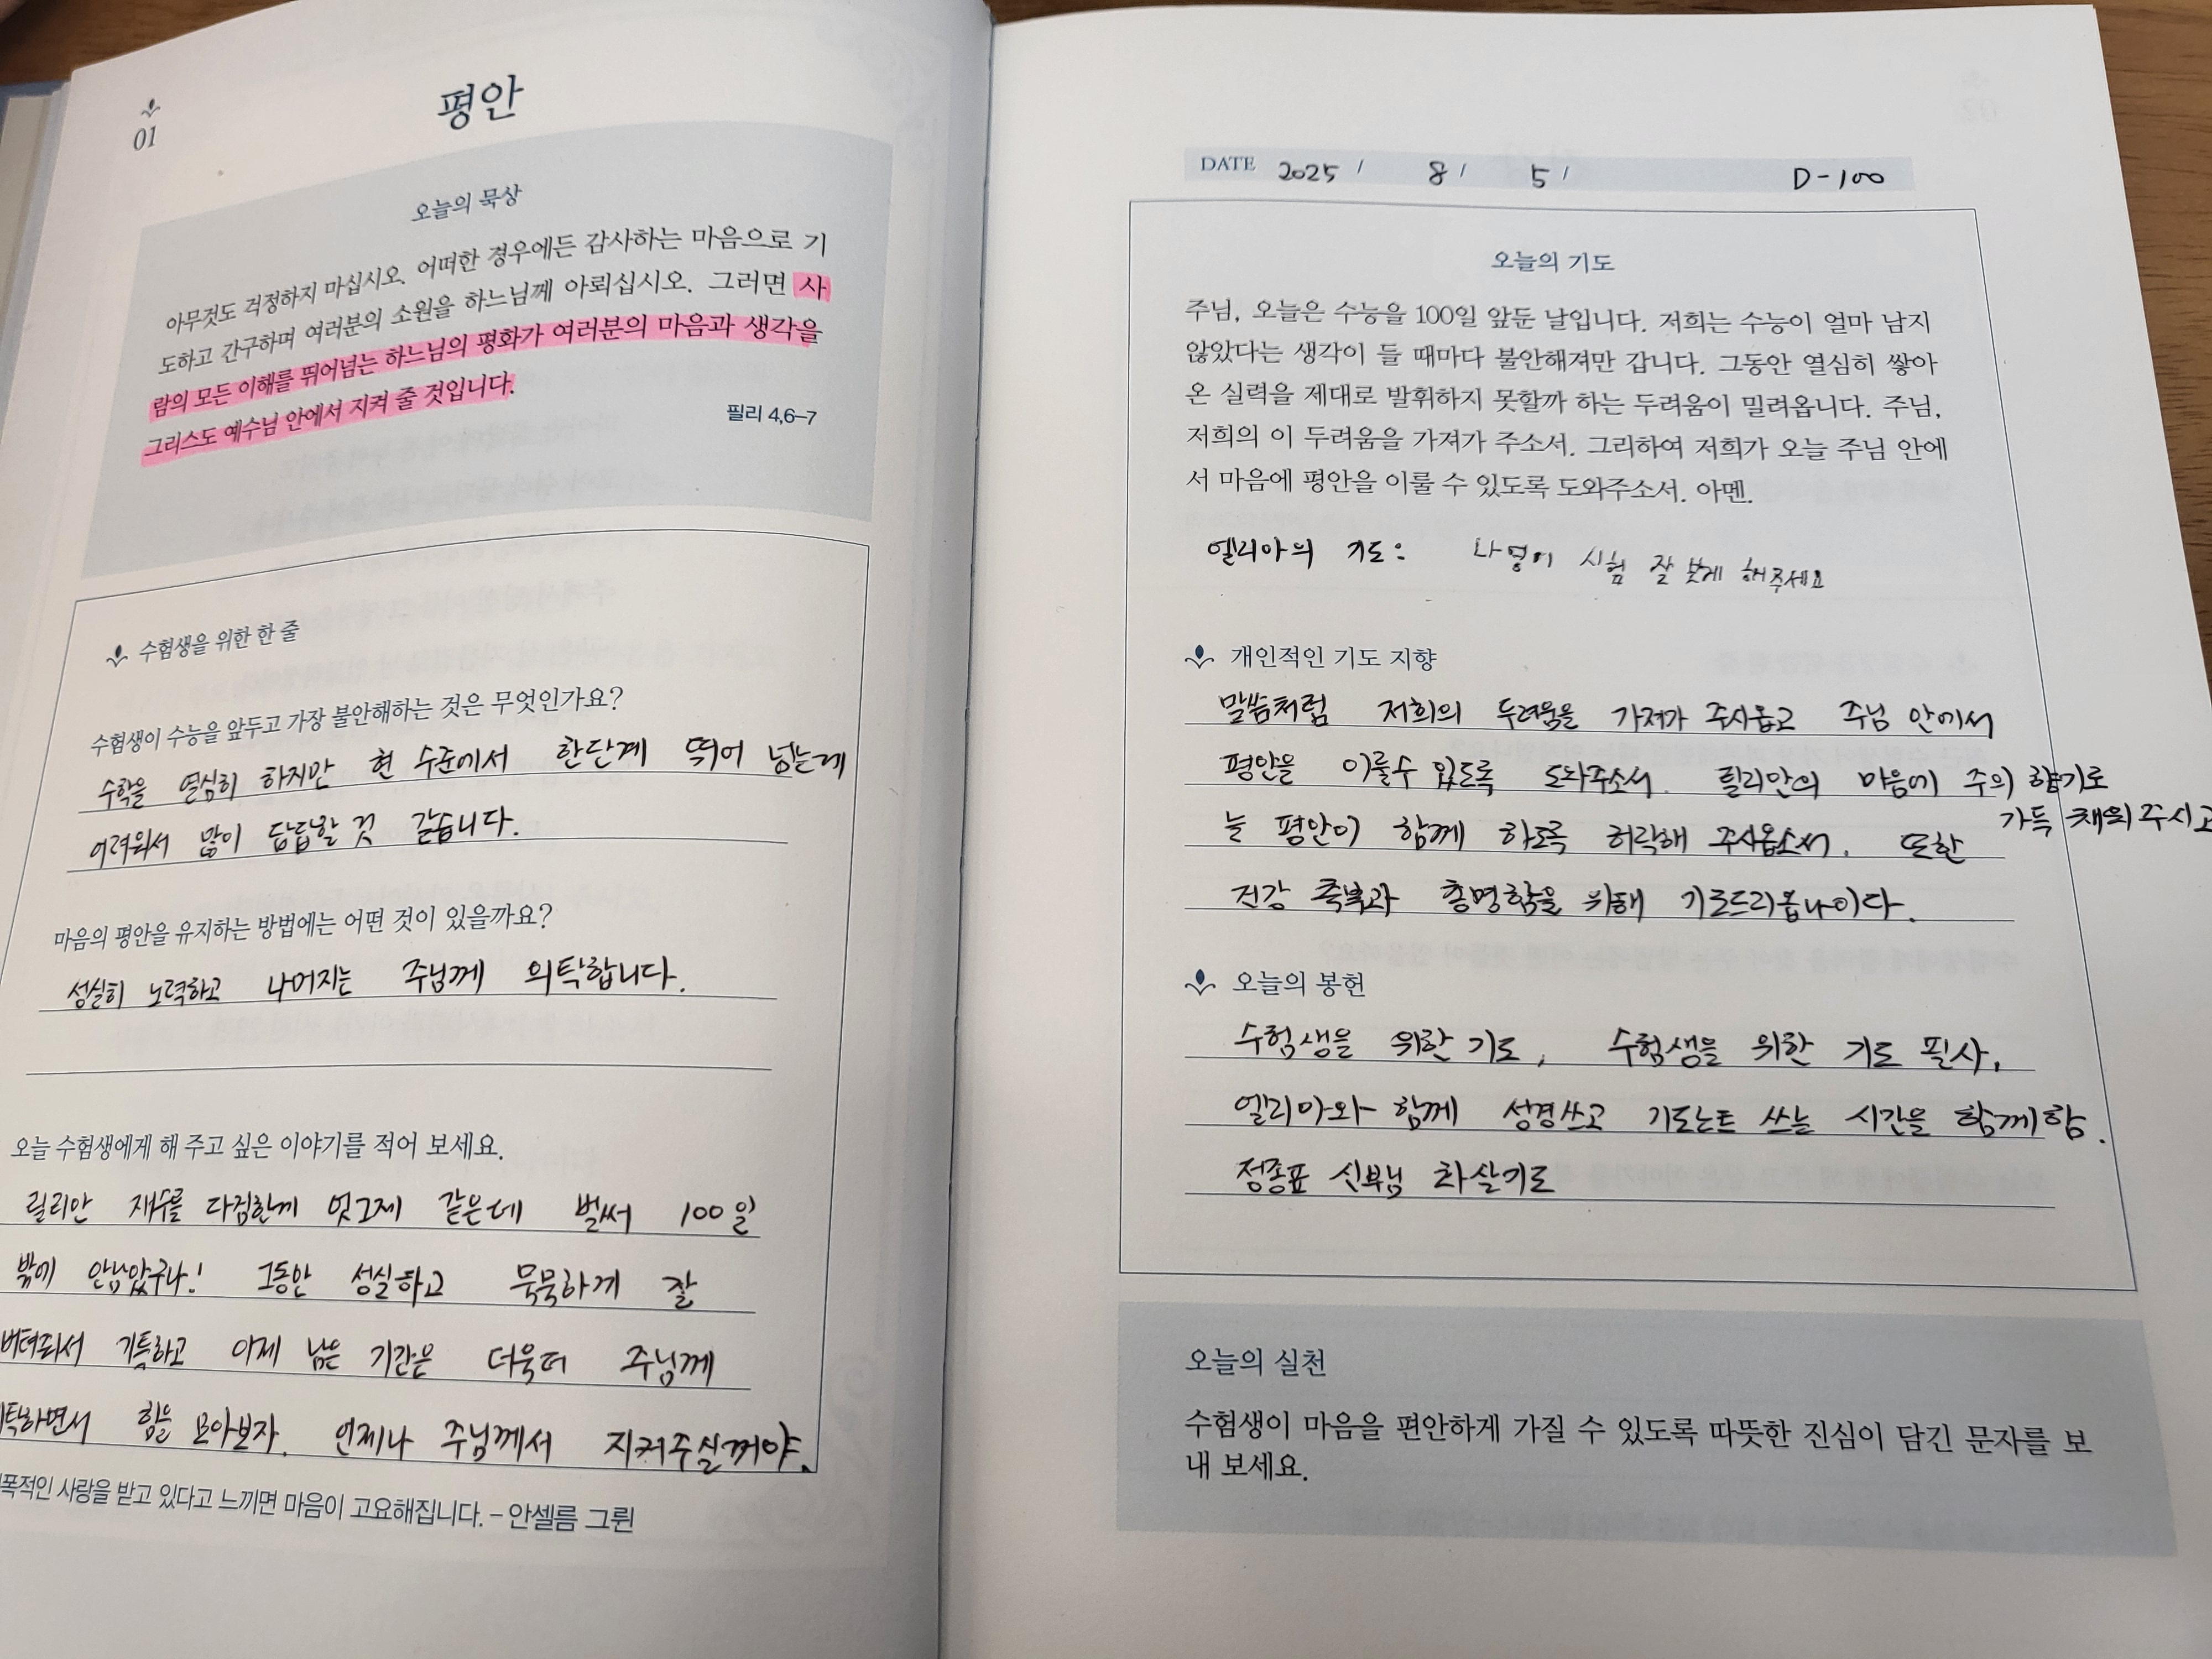 01
평안
오늘의 묵상
아무것도 걱정하지 마십시오. 어떠한 경우에든 감사하는 마음으로 기
도하고 간구하며 여러분의 소원을 하느님께 아뢰십시오. 그러면 사
람의 모든 이해를 뛰어넘는 하느님의 평화가 여러분의 마음과 생각을
그리스도 예수님 안에서 지켜 줄 것입니다.
필리 4,6–7
수험생을 위한 한 줄
수험생이 수능을 앞두고 가장 불안해하는 것은 무엇인가요?
수학을 열심히 하지만 현 수준에서 한단계 뛰어 넘는게
어려워서 많이 답답할 것 같습니다.
마음의 평안을 유지하는 방법에는 어떤 것이 있을까요?
성실히 노력하고 나머지는 주님께 의탁합니다.
오늘 수험생에게 해 주고 싶은 이야기를 적어 보세요.
릴리안 재수를 다짐한게 엇그제 같은데 벌써 100일
밖에 안남았구나! 그동안 성실하고 묵묵하게 잘
버텨와서 기특하고 이제 남은 기간은 더욱더 주님께
탁하면서 힘을 모아보자. 언제나 주님께서 지켜주실꺼야.
폭적인 사랑을 받고 있다고 느끼면 마음이 고요해집니다. – 안셀름 그륀
DATE 2025 / 8 / 5 / D-100
오늘의 기도
주님, 오늘은 수능을 100일 앞둔 날입니다. 저희는 수능이 얼마 남지
않았다는 생각이 들 때마다 불안해져만 갑니다. 그동안 열심히 쌓아
온 실력을 제대로 발휘하지 못할까 하는 두려움이 밀려옵니다. 주님,
저희의 이 두려움을 가져가 주소서. 그리하여 저희가 오늘 주님 안에
서 마음에 평안을 이룰 수 있도록 도와주소서. 아멘.
엘리아의 기도: 나영이 시험 잘 보게 해주세요
개인적인 기도 지향
말씀처럼 저희의 두려움을 가져가 주시옵고 주님 안에서
평안을 이룰수 있도록 도와주소서. 릴리안의 마음에 주의 향기로
가득 채워 주시고
늘 평안이 함께 하도록 허락해 주시옵소서. 또한
건강 축복과 총명함을 위해 기도드리옵나이다.
오늘의 봉헌
수험생을 위한 기도, 수험생을 위한 기도 필사,
엘리아와 함께 성경쓰고 기도노트 쓰는 시간을 함께함.
정종표 신부님 화살기도
오늘의 실천
수험생이 마음을 편안하게 가질 수 있도록 따뜻한 진심이 담긴 문자를 보
내 보세요.